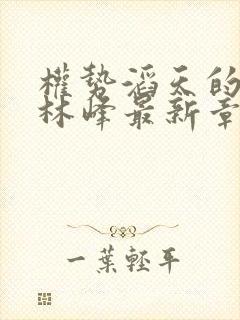 權勢滔天的
林峰最新章
一葉輕平